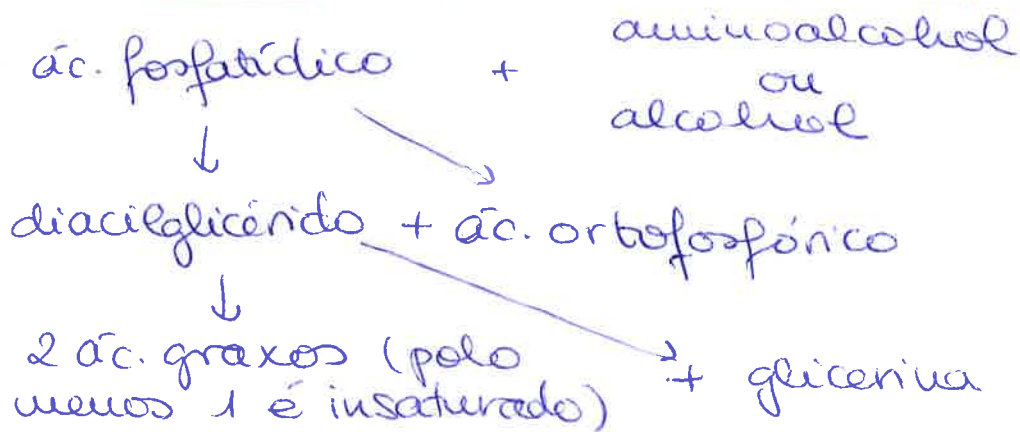 ác. fosfatídico + aminoalcohol
ou
alcohol
↓
diacilglicérido + ác. ortofosfórico
↓
2 ác. graxos (polo
menos 1 é insaturado) + glicerina